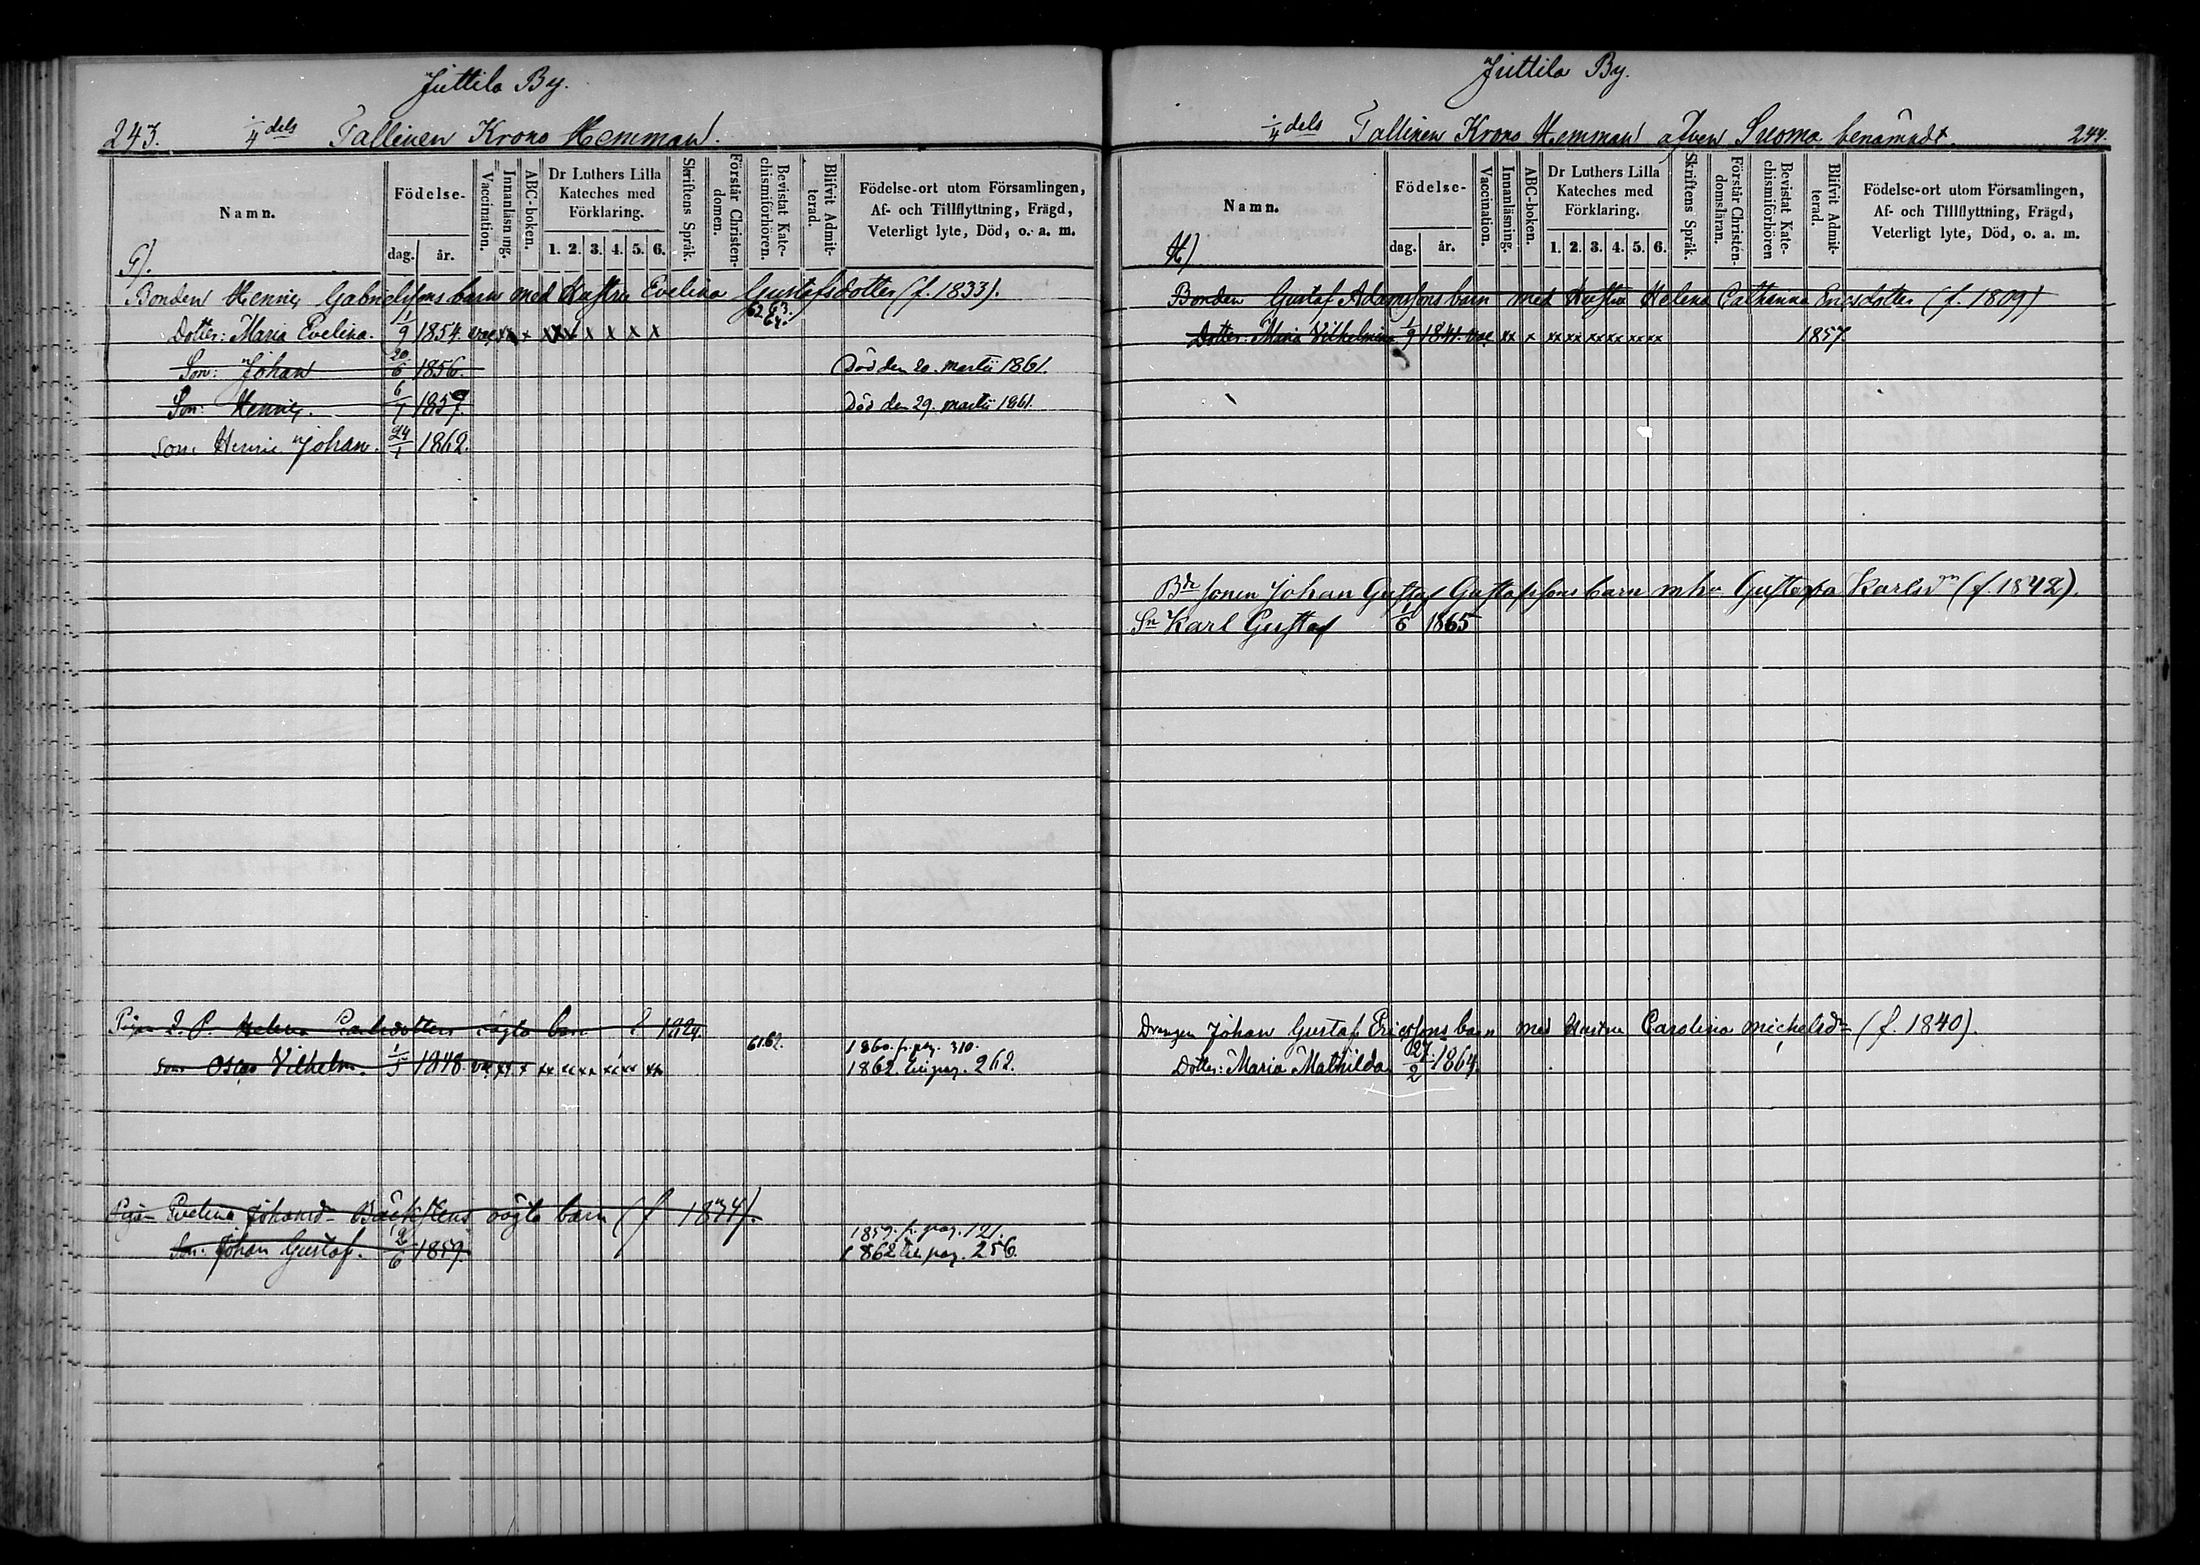 Juttila By.
243. 1/4 dels Tallinen Krono Hemman.
Namn.
Födelse-
dag.
år.
Vaccination.
Innanläsning.
ABC-boken.
Dr Luthers Lilla Kateches med Förklaring.
1. 2. 3. 4. 5. 6.
Skriftens Språk.
Förstår Christen-domen.
Bevistat Kate-chismiförhören.
Blifvit Admit-terad.
Födelse-ort utom Församlingen,
Af- och Tillflyttning, Frägd,
Veterligt lyte, Död, o. a. m.
G).
Bonden Henric Gabrielssons barn med Hustru Evelina Gustafsdotter (f. 1833).
62. 63. 64.
Dotter: Maria Evelina. 1/9 1854. vac xx x xx x x x x x
Son: Johan 20/6 1856. Död den 20. martii 1861.
Son: Henric. 6/1 1859. Död den 29. martii 1861.
Son: Henric Johan. 24/1 1862.
Pigan I. P. Helena Carlsdotters oägta barn f. 1824.
61.62. 1860. fr. pag. 310.
Son Oscar Vilhelm. 1/5 1848. vac xx x xx xx xx xx xx xx 1862. till pag. 262.
Pigan Evelina Johansd. Bäckstens oägta barn (f 1834).
1859. fr. pag. 121.
Son: Johan Gustaf. 2/6 1859. 1862 till pag. 256.
Juttila By.
1/4 dels Tallinen Krono Hemman äfven Suoma benämndt. 244.
Namn.
Födelse-
dag.
år.
Vaccination.
Innanläsning.
ABC-boken.
Dr Luthers Lilla Kateches med Förklaring.
1. 2. 3. 4. 5. 6.
Skriftens Språk.
Förstår Christen-domsläran.
Bevistat Kate-chismiförhören
Blifvit Admit-terad.
Födelse-ort utom Församlingen,
Af- och Tillflyttning, Frägd,
Veterligt lyte, Död, o. a. m.
H)
Bonden Gustaf Adamssons barn med Hustru Helena Catharina Ericsdotter (f. 1809)
Dotter: Maria Vilhelmina 1/9 1841. vac xx x xx xx xx xx xx xx 1857.
Bde sonen Johan Gustaf Gustafssons barn m hu Gustafva Karlsdr (f. 1842).
Sn Karl Gustaf 1/6 1865
Drengen Johan Gustaf Ericssons barn med Hustru Carolina Michelsdr (f. 1840).
Dotter: Maria Mathilda 27/2 1864.